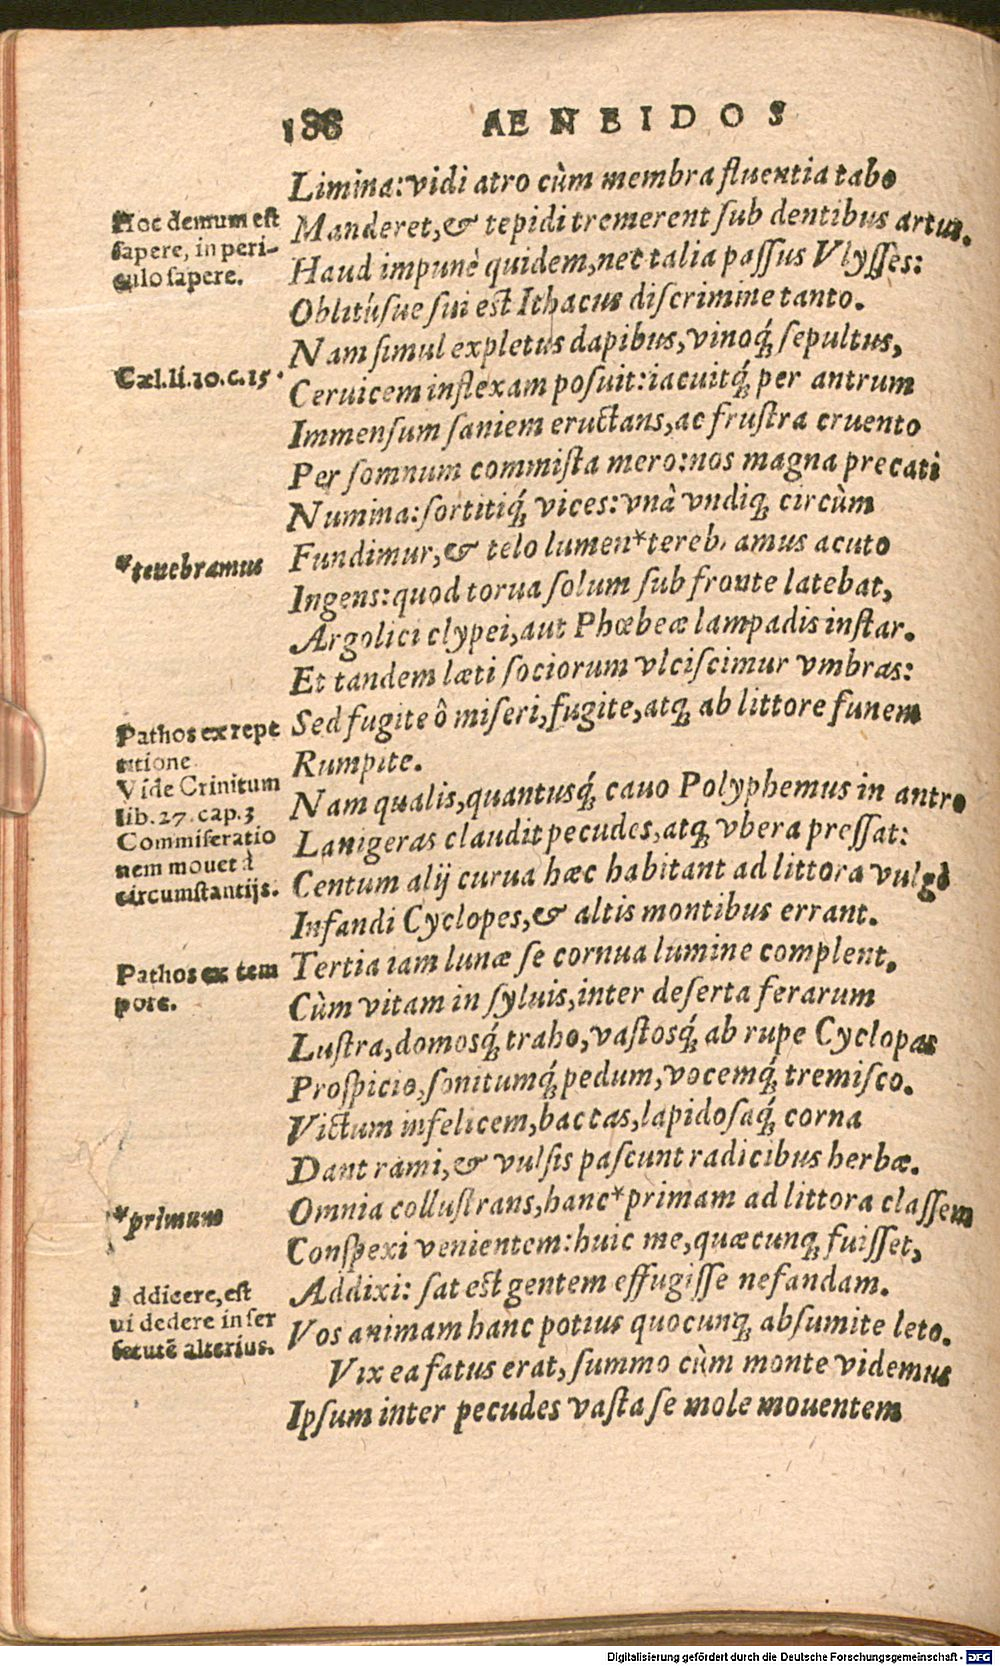 188 AENEIDOS
Limina: vidi atro cùm membra fluentia tabo
Hoc demum est
sapere, in peri-
culo sapere.
Manderet, & tepidi tremerent sub dentibus artus.
Haud impunè quidem, nec talia passus Vlysses:
Oblitúsue sui est Ithacus discrimine tanto.
Nam simul expletus dapibus, vinoq́; sepultus,
Cæl. li. 10. c. 15.
Ceruicem inflexam posuit: iacuitq́; per antrum
Immensum saniem eructans, ac frustra cruento
Per somnum commista mero: nos magna precati
Numina: sortitiq́; vices: vnà vndiq; circùm
*tenebramus
Fundimur, & telo lumen *tereb, amus acuto
Ingens: quod torua solum sub fronte latebat,
Argolici clypei, aut Phœbeæ lampadis instar.
Et tandem læti sociorum vlciscimur vmbras:
Sed fugite ô miseri, fugite, atq; ab littore funem
Pathos ex repe
titione
Vide Crinitum
lib. 27. cap. 3
Commiseratio
nem mouet à
circumstantijs.
Rumpite.
Nam qualis, quantusq́; cauo Polyphemus in antro
Lanigeras claudit pecudes, atq; vbera pressat:
Centum alij curua hæc habitant ad littora vulgò
Infandi Cyclopes, & altis montibus errant.
Pathos ex tem
pore.
Tertia iam lunæ se cornua lumine complent,
Cùm vitam in syluis, inter deserta ferarum
Lustra, domosq́; traho, vastosq́; ab rupe Cyclopas
Prospicio, sonitumq́; pedum, vocemq́; tremisco.
Victum infelicem, baccas, lapidosaq́; corna
Dant rami, & vulsis pascunt radicibus herbæ.
*primum
Omnia collustrans, hanc *primam ad littora classem
Conspexi venientem: huic me, quæcunq; fuisset,
Addicere, est
ui dedere in ser
uitutē alterius.
Addixi: sat est gentem effugisse nefandam.
Vos animam hanc potius quocunq; absumite leto.
Vix ea fatus erat, summo cùm monte videmus
Ipsum inter pecudes vasta se mole mouentem
Digitalisierung gefördert durch die Deutsche Forschungsgemeinschaft - DFG